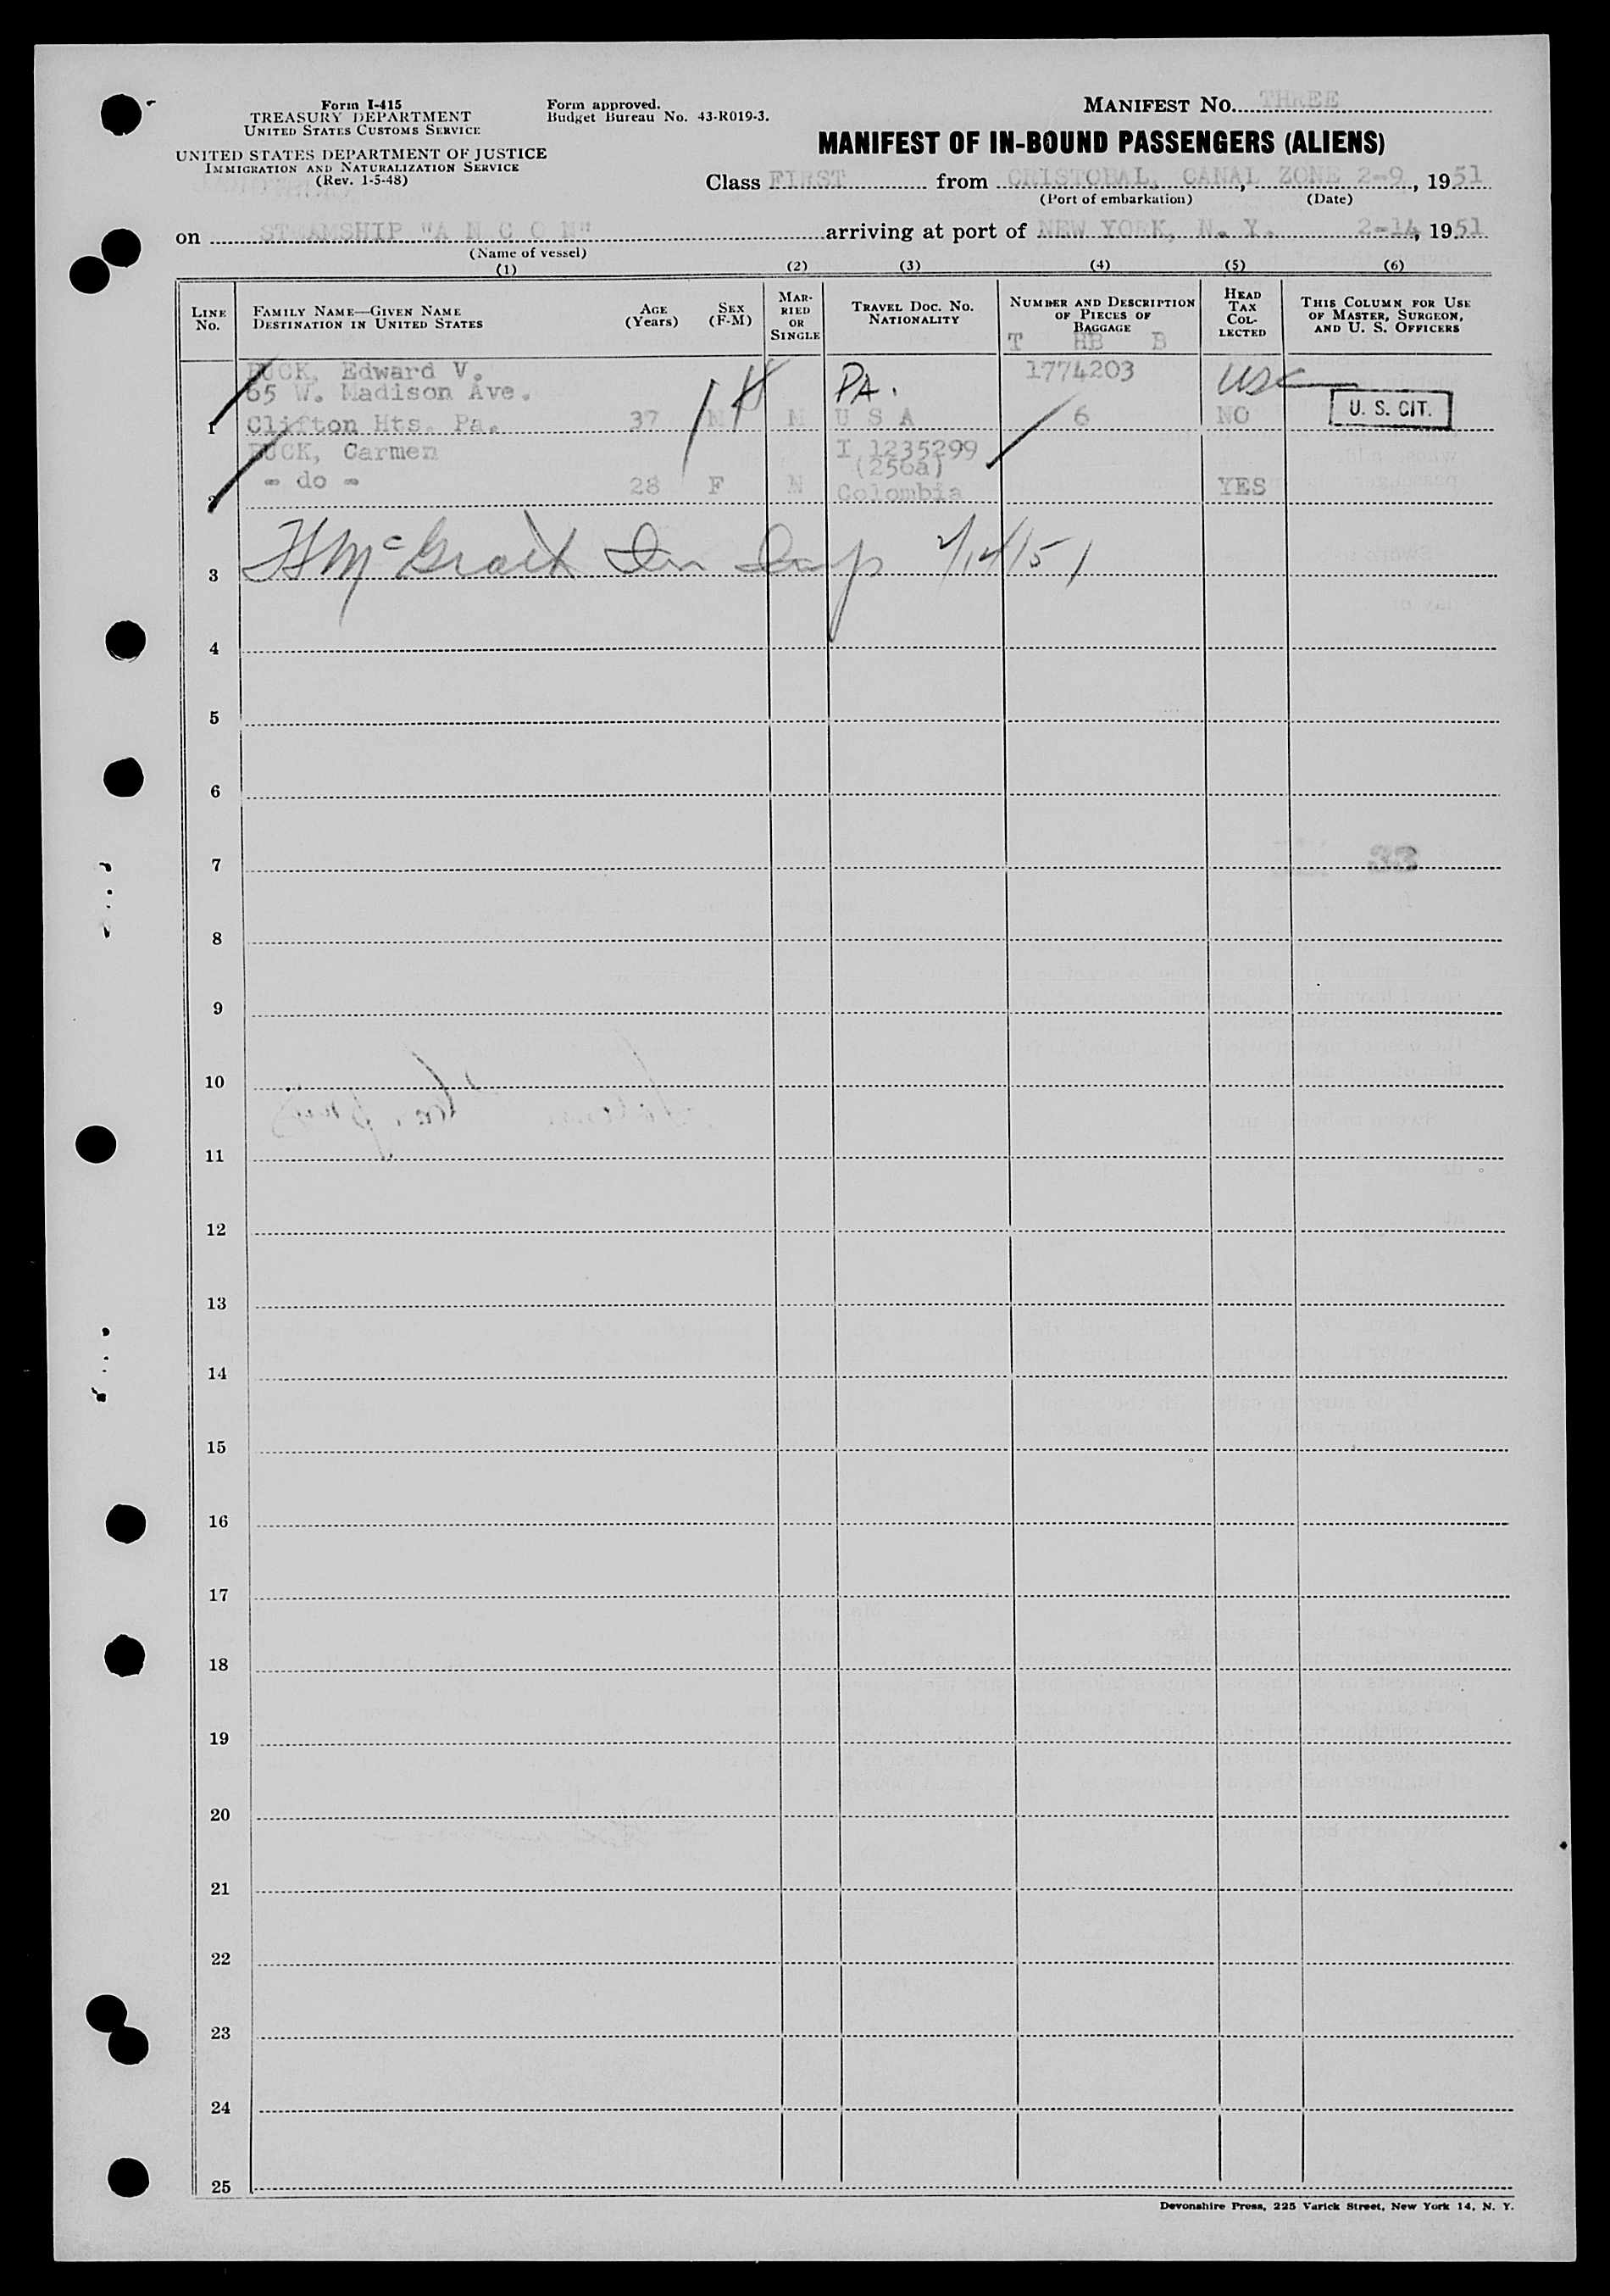 Form I-415
TREASURY DEPARTMENT
UNITED STATES CUSTOMS SERVICE
UNITED STATES DEPARTMENT OF JUSTICE
IMMIGRATION AND NATURALIZATION SERVICE
(Rev. 1-5-48)
Form approved.
Budget Bureau No. 43-R019-3.
MANIFEST NO. THREE
MANIFEST OF IN-BOUND PASSENGERS (ALIENS)
Class FIRST from CRISTOBAL, CANAL ZONE 2-9, 1951
(Port of embarkation) (Date)
on STEAMSHIP "A N C O N" arriving at port of NEW YORK, N. Y. 2-14, 1951
(Name of vessel)
(1) (2) (3) (4) (5) (6)
LINE No.
FAMILY NAME—GIVEN NAME
DESTINATION IN UNITED STATES
AGE (Years)
SEX (F-M)
MARRIED OR SINGLE
TRAVEL DOC. NO. NATIONALITY
NUMBER AND DESCRIPTION OF PIECES OF BAGGAGE
T HB B
HEAD TAX COLLECTED
THIS COLUMN FOR USE OF MASTER, SURGEON, AND U. S. OFFICERS
Edward V. PA. 1774203 USC
65 W. Madison Ave.
1 Clifton Hts. Pa. 37 M M U S A 6 NO U. S. CIT.
Carmen I 1235299
(256a)
2 - do - 28 F M Colombia YES
3 McGrath Im Insp 2/14/51
4
5
6
7
8
9
10
11
12
13
14
15
16
17
18
19
20
21
22
23
24
25
Devonshire Press, 225 Varick Street, New York 14, N. Y.